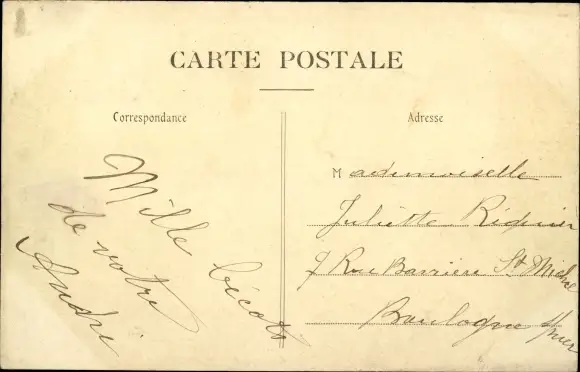 CARTE POSTALE
Correspondance
Mille bécots
de votre
André
Adresse
Mademoiselle
Juliette Riquier
7 Rue Barrière St Michel
Boulogne s/mer